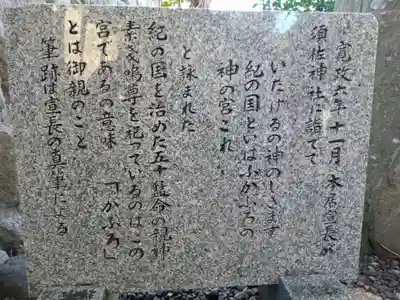 寛政六年十一月 本居宣長が
須佐神社に詣でて
いたけるの神のしきます
紀の国といはゞかぶろの
神の宮これ
と詠まれた
紀の国を治めた五十猛命の親神
素戔嗚尊を祀っているのはこの
宮であるの意味 「かぶろ」
とは御親のこと
筆跡は宣長の真筆による